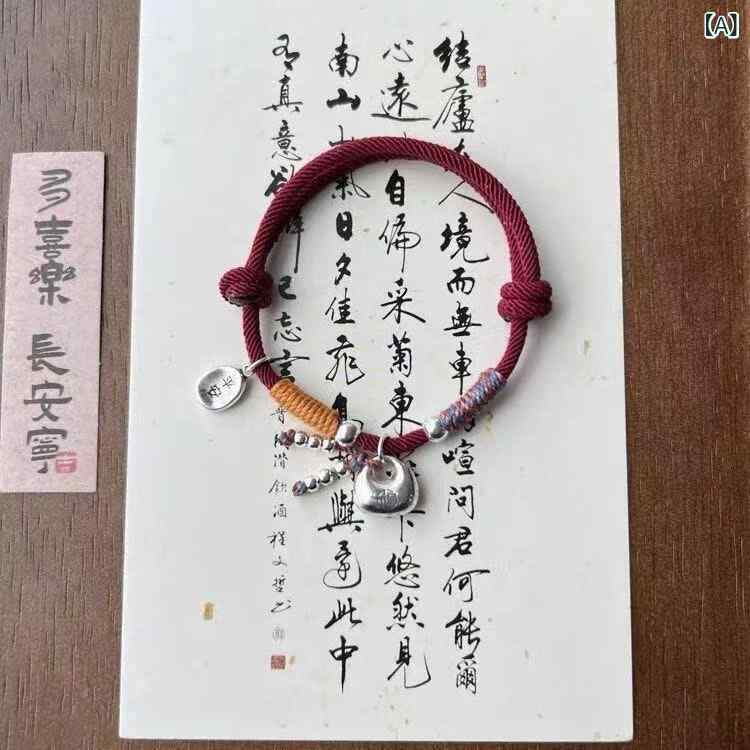 【A】
结廬人境而無車喧問君何能爾
心遠自偏采菊東下悠然見
南山山氣日夕佳飛與還此中
有真意欲辨已忘言
潛飲酒程文哲书
多喜樂 長安寧
平安